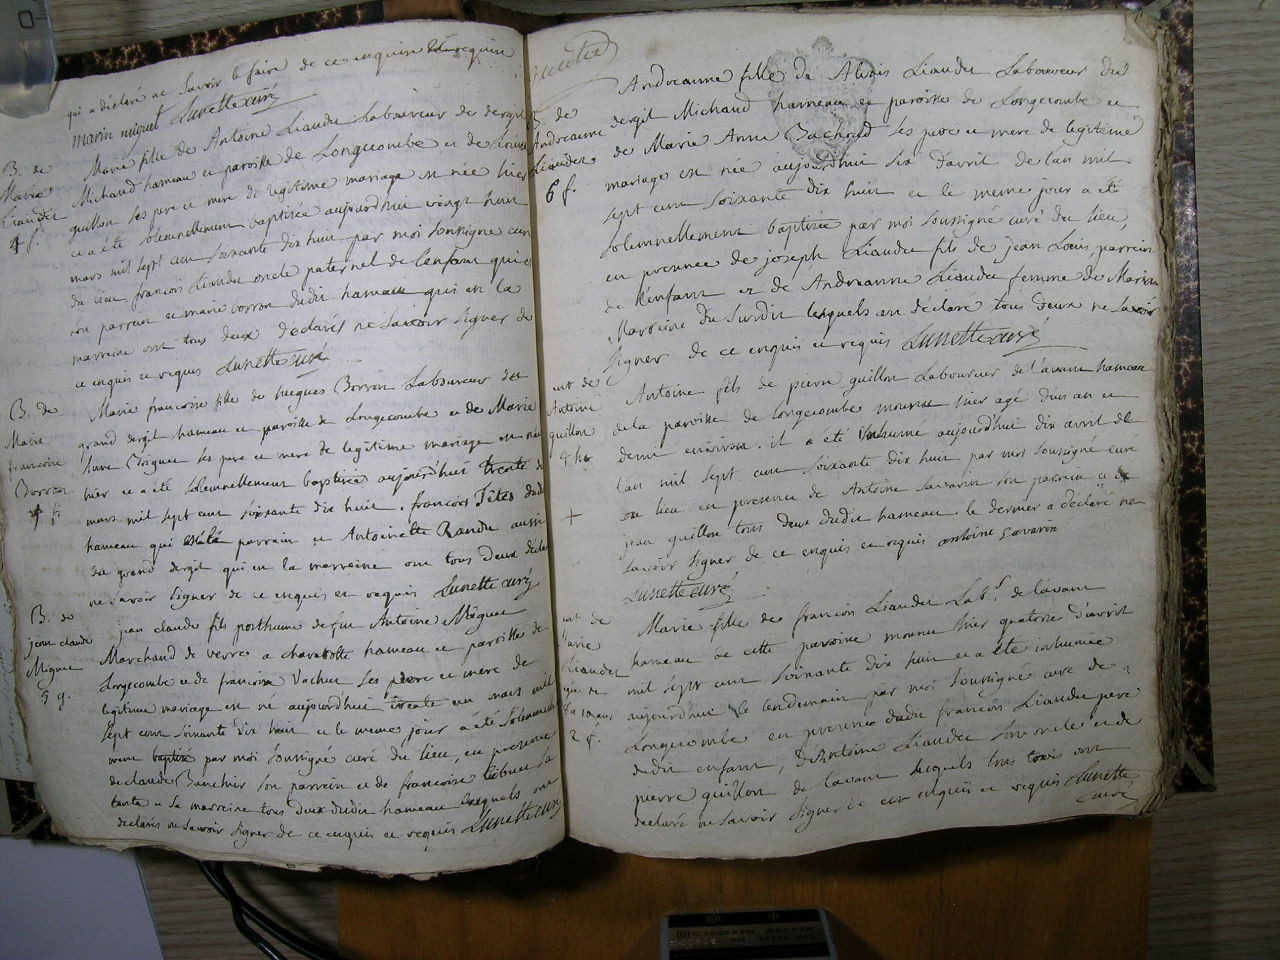 qui a déclaré ne savoir le faire de ce enquis et requis
marin miguet Lunette curé
B. de
Marie
Liaudet
4 f.
Marie fille de Antoine Liaudet Laboureur de dergit
Michaud hameau et paroisse de Longecombe et de Louise
guillon ses pere et mere de legitime mariage est née hier
et a été solemnellement baptisée aujourd'hui vingt huit
mars mil sept cent soixante dix huit par moi soussigné curé
du lieu, françois Liaudet oncle paternel de l'enfant qui est
son parrein et marie borron dudit hameau qui est la
marreine ont tous deux déclarés ne savoir signer de
ce enquis et requis Lunette curé
B. de
Marie
francoise
Borron
Marie francoise fille de hugues Borron Laboureur du
grand dergit hameau et paroisse de Longecombe et de Marie
ses pere et mere de legitime mariage est née
hier et a été solemnellement baptisée aujourd'hui trente de
mars mil sept cent soixante dix huit. francois dudit
hameau qui est le parrain et Antoinette aussi
du grand dergit qui est la marreine ont tous deux déclaré
ne savoir signer de ce enquis et requis Lunette curé
B. de
jean claude
Miguet
5 g.
jean claude fils posthume de feu Antoine Miguet
Marchand de verre a hameau et paroisse de
Longecombe et de francoise Vachut ses pere et mere de
legitime mariage est né aujourd'hui trente un mars mil
sept cent soixante dix huit et le meme jour a été solemnelle
ment baptisé par moi soussigné curé du lieu, en presence
de claude son parrein et de francoise sa
tante et sa marreine tous deux dudit hameau lesquels ont
declarés ne savoir signer de ce enquis et requis Lunette curé
B. de
Andreanne
Liaudet
6 f.
Andreanne fille de Liaudet Laboureur du
dergit Michaud hameau et paroisse de Longecombe et
de Marie Anne Bachod ses pere et mere de legitime
mariage est née aujourd'hui six d'avril de l'an mil
sept cent soixante dix huit et le meme jour a été
solemnellement baptisée par moi soussigné curé du lieu,
en presence de joseph Liaudet fils de jean Louis, parrein
de l'enfant et de Andreanne Liaudet femme de Marin
Marreine du susdit lesquels ont déclaré tous deux ne savoir
signer de ce enquis et requis Lunette curé
ent de
Antoine
guillon
Antoine fils de pierre guillon Laboureur de l'avant hameau
de la paroisse de Longecombe mourut hier agé d'un an et
demi environ. il a été inhumé aujourd'hui dix avril de
l'an mil sept cent soixante dix huit par moi soussigné curé
du lieu en presence de Antoine savarin son parrein et de
jean guillon tous deux dudit hameau le dernier a déclaré ne
savoir signer de ce enquis et requis antoine Savarin
Lunette curé
ent de
Marie
Liaudet
2 f.
Marie fille de francois Liaudet Lab.r de lavant
hameau de cette paroisse mourut hier quatorze d'avril
mil sept cent soixante dix huit et a été inhumée
aujourd'hui le lendemain par moi soussigné curé de
Longecombe en presence dudit francois Liaudet pere
dudit enfant, d'Antoine Liaudet son oncle et de
pierre guillon de lavant lesquels tous trois ont
declaré ne savoir signer de ce enquis et requis Lunette
curé